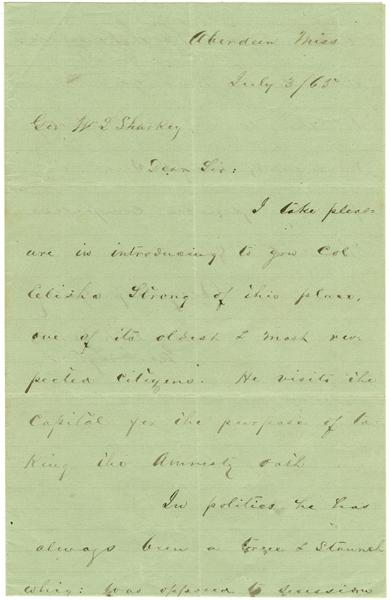 Aberdeen Miss
July 3/65
Gov W L Sharkey
Dear Sir:
I take pleas-
ure in introducing to you Col
Elisha Strong of this place,
one of its oldest & most res-
pected citizens. He visits the
Capitol for the purpose of ta-
king the Amnesty oath
In politics he has
always been a true & Staunch
whig: was opposed to secession